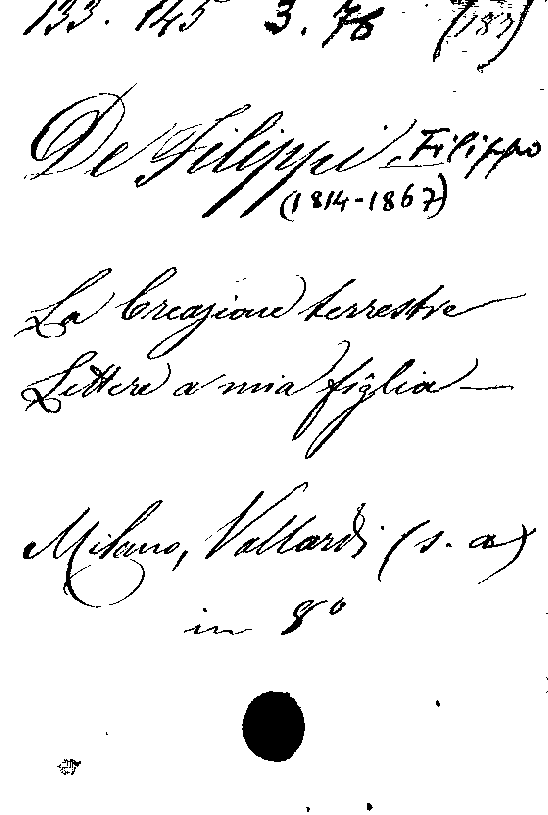 133. 145 3. 76 (183)
De Filippi, Filippo
(1814-1867)
La Creazione terrestre
Lettere a mia figlia —
Milano, Vallardi (s. a)
in 8°